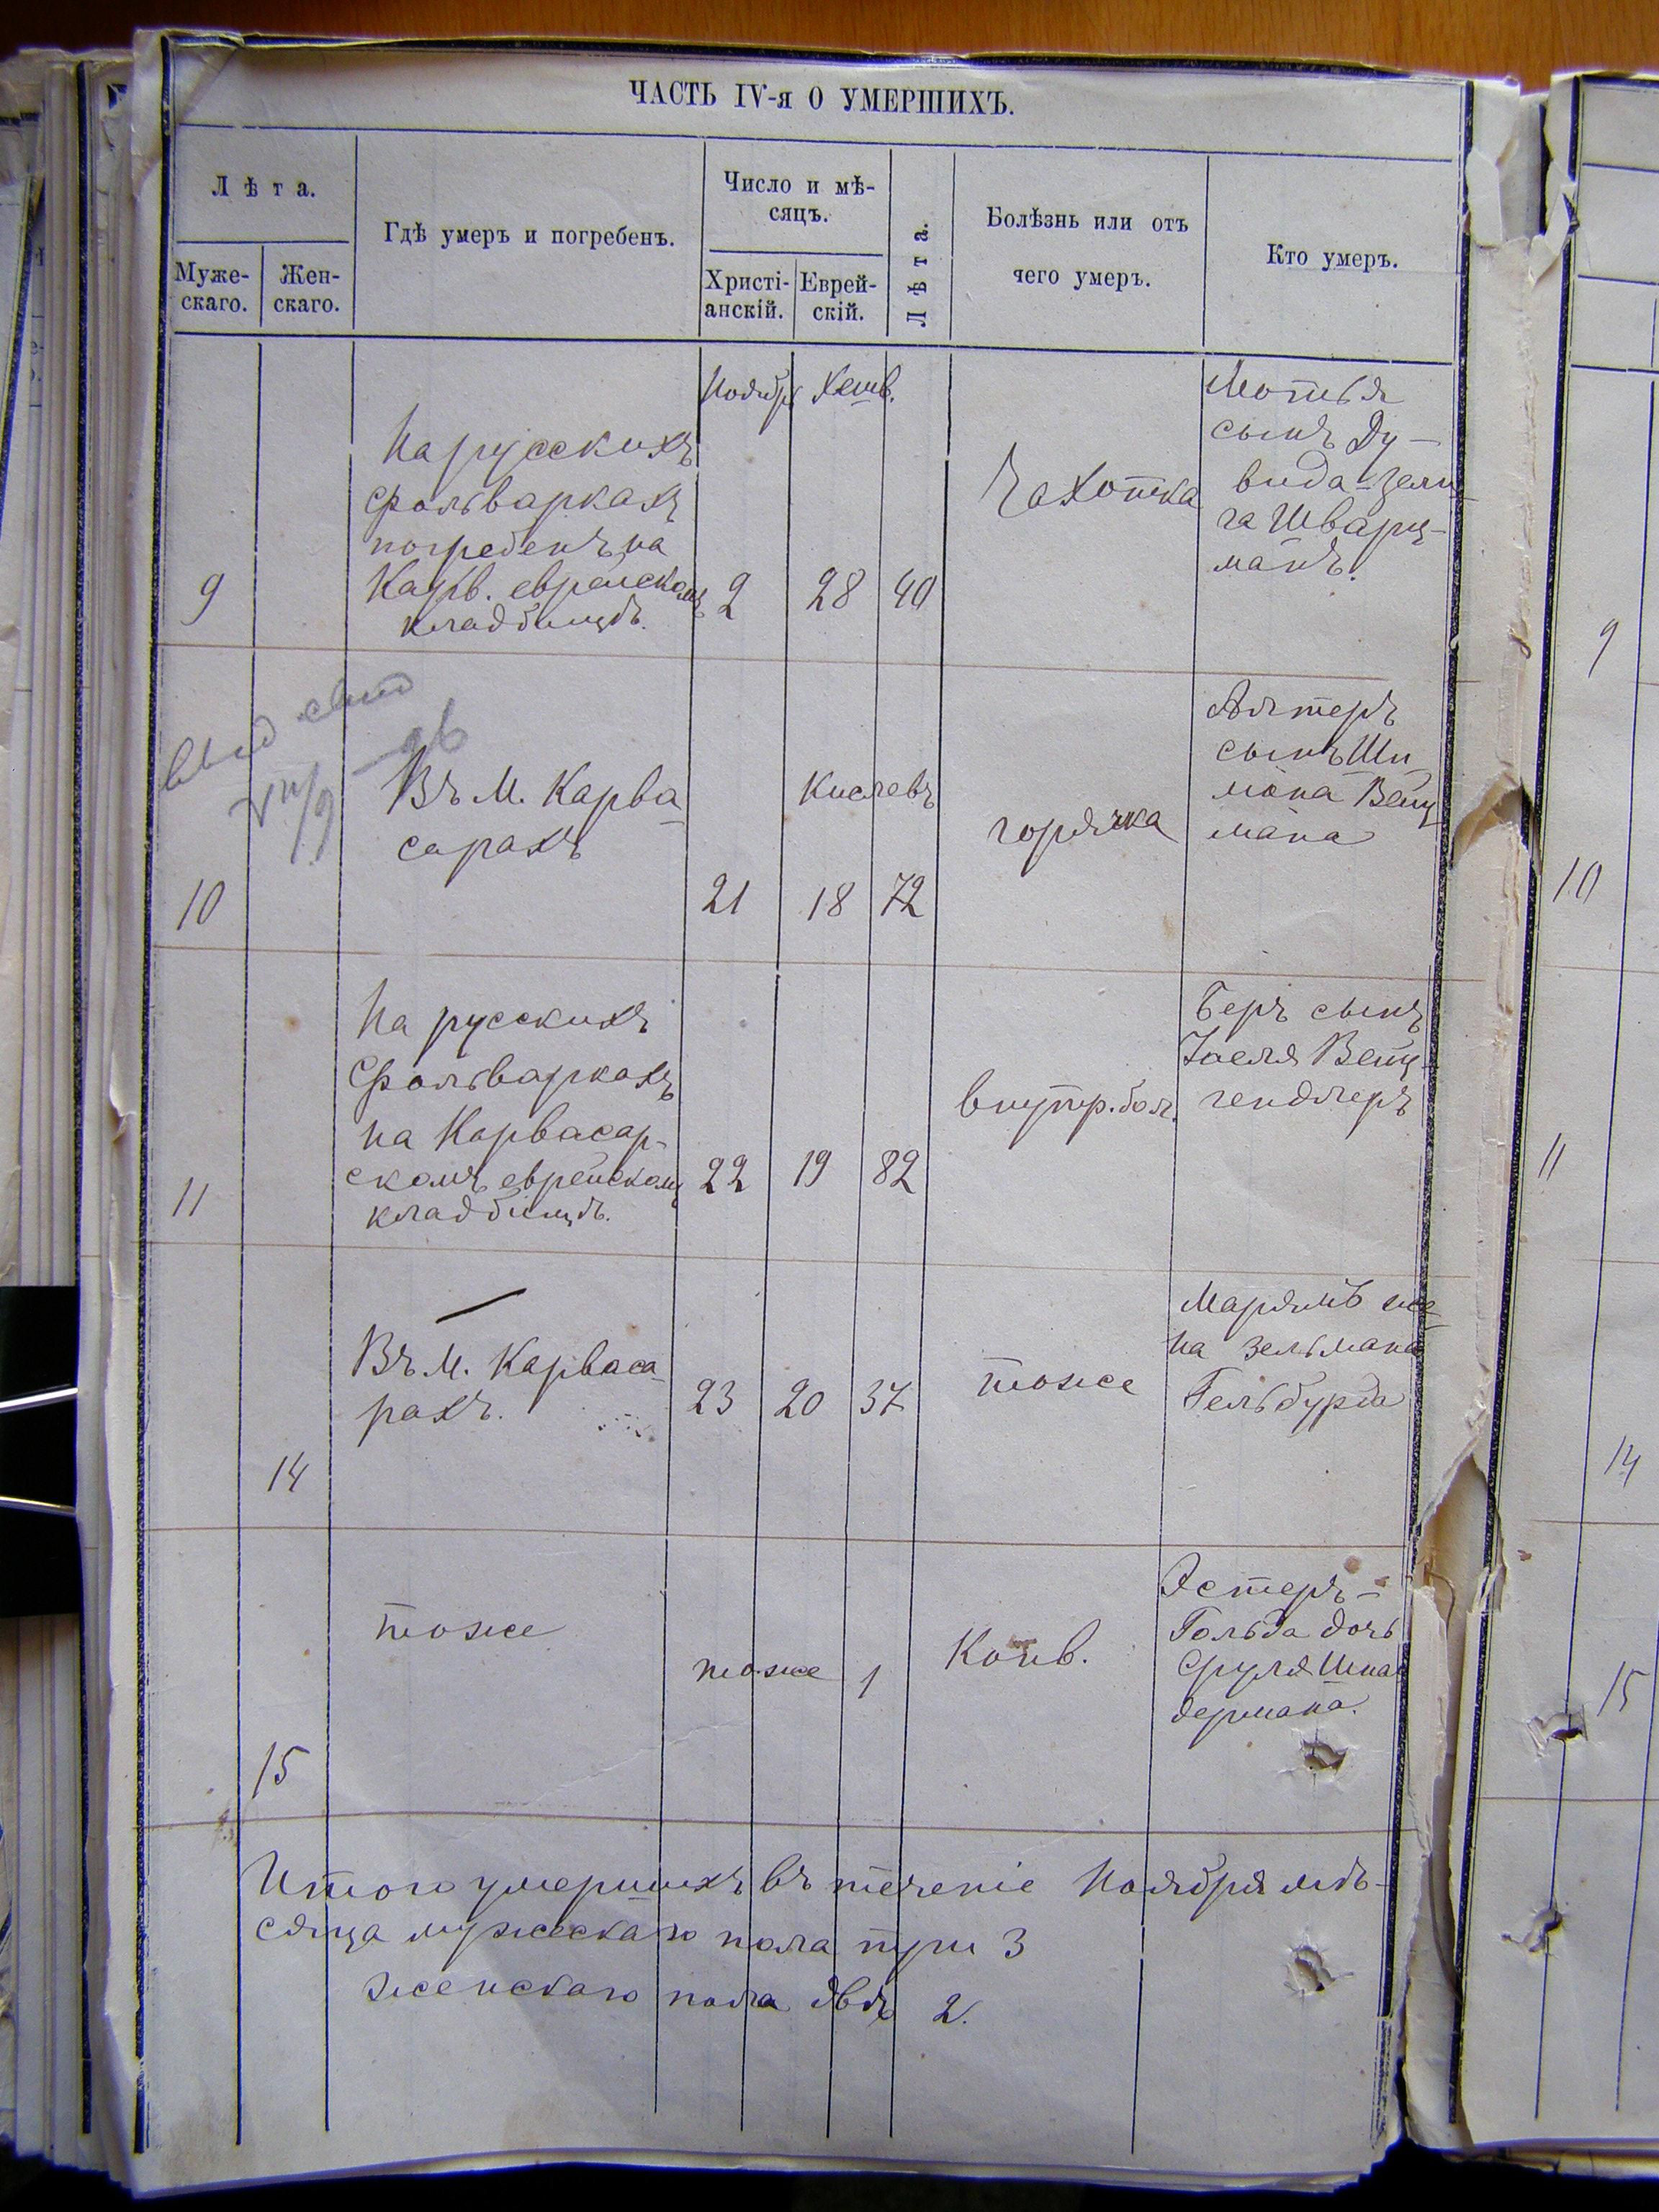 ЧАСТЬ IV-я О УМЕРШИХЪ.
Лѣта.
Муже-
скаго.
Жен-
скаго.
Гдѣ умеръ и погребенъ.
Число и мѣ-
сяцъ.
Христі-
анскій.
Еврей-
скій.
Лѣта.
Болѣзнь или отъ
чего умеръ.
Кто умеръ.
9
На русскихъ
фольваркахъ
погребенъ на
Карв. еврейскомъ
кладбищѣ.
Ноябр
2
Хешв.
28
40
Чахотка
Мотья
сынъ Ду-
вида-Зели-
га Шварц-
манъ.
9
10
Въ М. Карва-
сарахъ
21
Кислевъ
18
72
горячка
Алтеръ
сынъ Ши-
мона Вейц-
мана
10
11
На русскихъ
Фольваркахъ
на Карвасар-
скомъ еврейскомъ
кладбищѣ.
22
19
82
внутр. бол.
Беръ сынъ
Іоеля Вейц-
гендлеръ
11
14
Въ М. Карваса-
рахъ.
23
20
37
тоже
Марямъ же-
на Зельмана
Гельбурда
14
15
тоже
тоже
1
Конв.
Эстеръ-
Гольда дочь
Сруля Шна-
дермана.
15
Итого умершихъ въ теченіе Ноября мѣ-
сяца мужескаго пола три 3
женскаго пола двѣ 2.